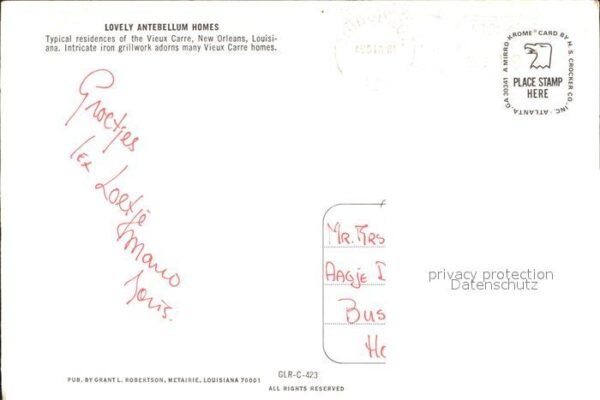 LOVELY ANTEBELLUM HOMES
Typical residences of the Vieux Carre, New Orleans, Louisi-
ana. Intricate iron grillwork adorns many Vieux Carre homes.
A MIRRO-KROME® CARD BY H. S. CROCKER CO., INC. ATLANTA, GA 30341
PLACE STAMP
HERE
Groetjes
Lex Loetje
Mano
Joris.
Mr. Mrs
Aagje
Bus
Ho
privacy protection
Datenschutz
GLR-C-423
PUB. BY GRANT L. ROBERTSON, METAIRIE, LOUISIANA 70001
ALL RIGHTS RESERVED